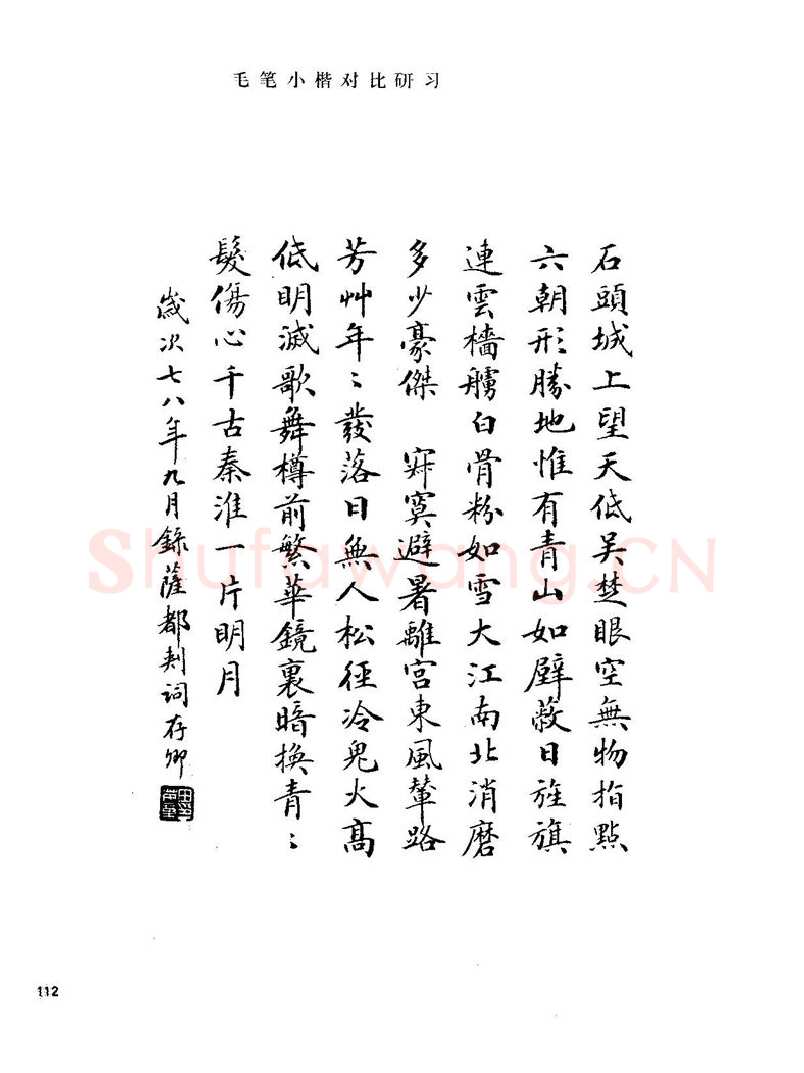 毛笔小楷对比研习
石頭城上望天低吳楚眼空無物指點
六朝形勝地惟有青山如壁蔽日旌旗
連雲檣艣白骨粉如雪大江南北消磨
多少豪傑 寂寞避暑離宮東風輦路
芳艸年〻發落日無人松徑冷鬼火高
低明滅歌舞樽前繁華鏡裏暗換青〻
髮傷心千古秦淮一片明月
歲次七八年九月錄薩都剌詞存卿
112
Shufawang.CN